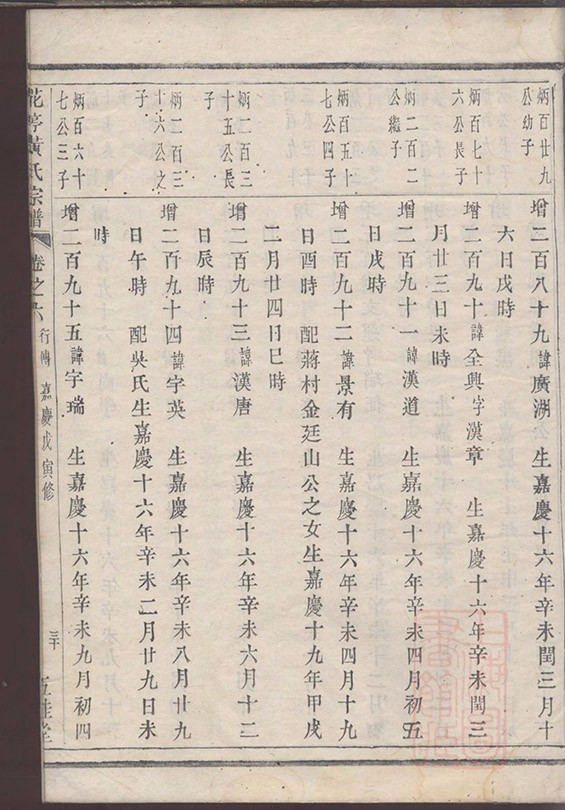 炳百廿九
公幼子
增二百八十九諱廣湖 生嘉慶十六年辛未閏三月十
六日戌時
炳百七十
六公長子
增二百九十諱全興字漢章 生嘉慶十六年辛未閏三
月廿三日未時
炳二百二
公繼子
增二百九十一諱漢道 生嘉慶十六年辛未四月初五
日戌時
炳百五十
七公四子
增二百九十二諱景有 生嘉慶十六年辛未四月十九
日酉時 配蔣村金廷山公之女生嘉慶十九年甲戌
二月廿四日巳時
炳二百三
十五公長
子
增二百九十三諱漢唐 生嘉慶十六年辛未六月十二
日辰時
炳二百三
十六公之
子
增二百九十四諱字英 生嘉慶十六年辛未八月廿九
日午時 配吳氏生嘉慶十六年辛未二月廿九日未
時
炳百六十
七公三子
增二百九十五諱字瑞 生嘉慶十六年辛未九月初四
花亭黃氏宗譜 卷之 行傳 嘉慶戊寅修 三十